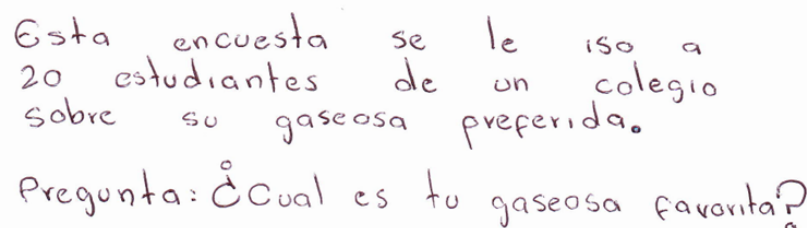 Esta encuesta se le iso a
20 estudiantes de un colegio
sobre su gaseosa preferida.
Pregunta: ¿Cual es tu gaseosa favorita?